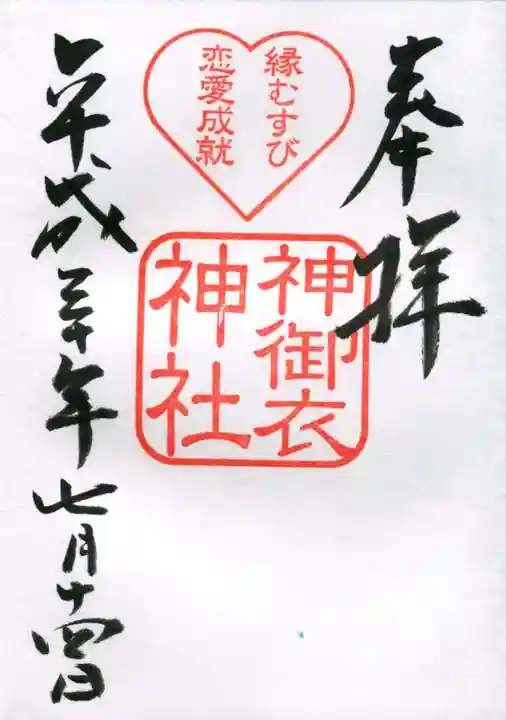 奉拝
縁むすび
恋愛成就
神御衣
神社
平成三十年七月十四日